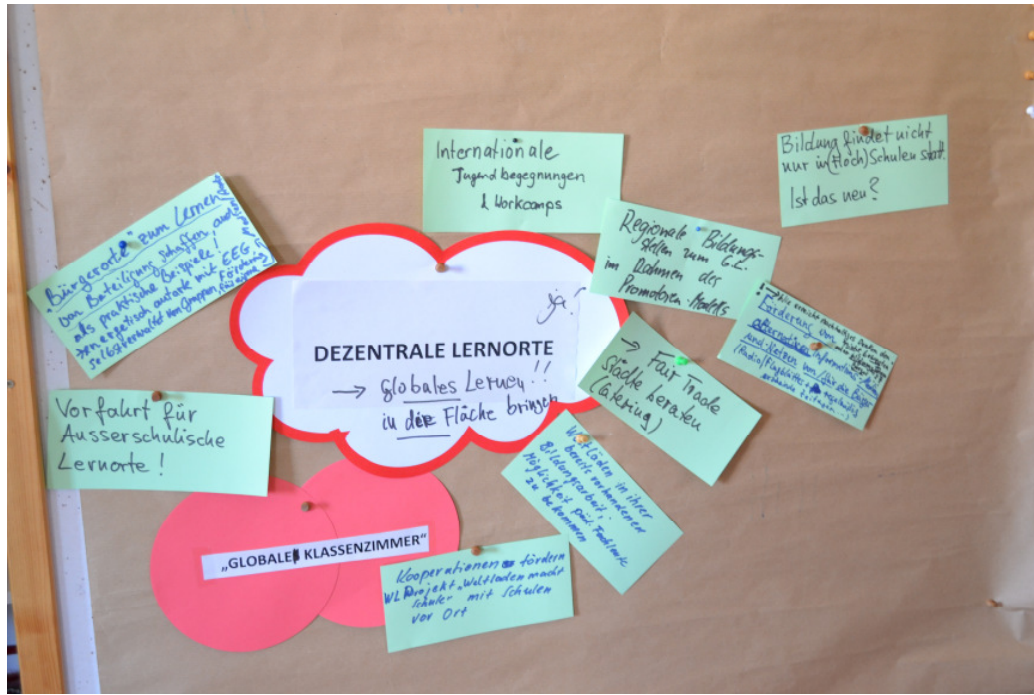 Internationale
Jugendbegegnungen
& Workcamps
Bildung findet nicht
nur in (Hoch)Schulen statt.
Ist das neu?
"Bürgerorte" zum Lernen
von Beteiligung schaffen, auch
als praktische Beispiele!
→ energetisch autark mit EEG
selbstverwaltet von Gruppen
Regionale Bildungs-
stellen zum G.L.
im Rahmen des
Promotoren-Modells
ja!
DEZENTRALE LERNORTE
→ globales Lernen!!
in die Fläche bringen
Förderung von
alternativen
→ Fair Trade
Städte beraten
(Catering)
Vorfahrt für
Ausserschulische
Lernorte!
Weltläden in ihrer
bereits vorhandenen
Bildungsarbeit;
Möglichkeit päd. Fachleute
zu bekommen
„GLOBALES KLASSENZIMMER"
Kooperationen fördern
WL Projekt „Weltladen macht
Schule" mit Schulen
vor Ort